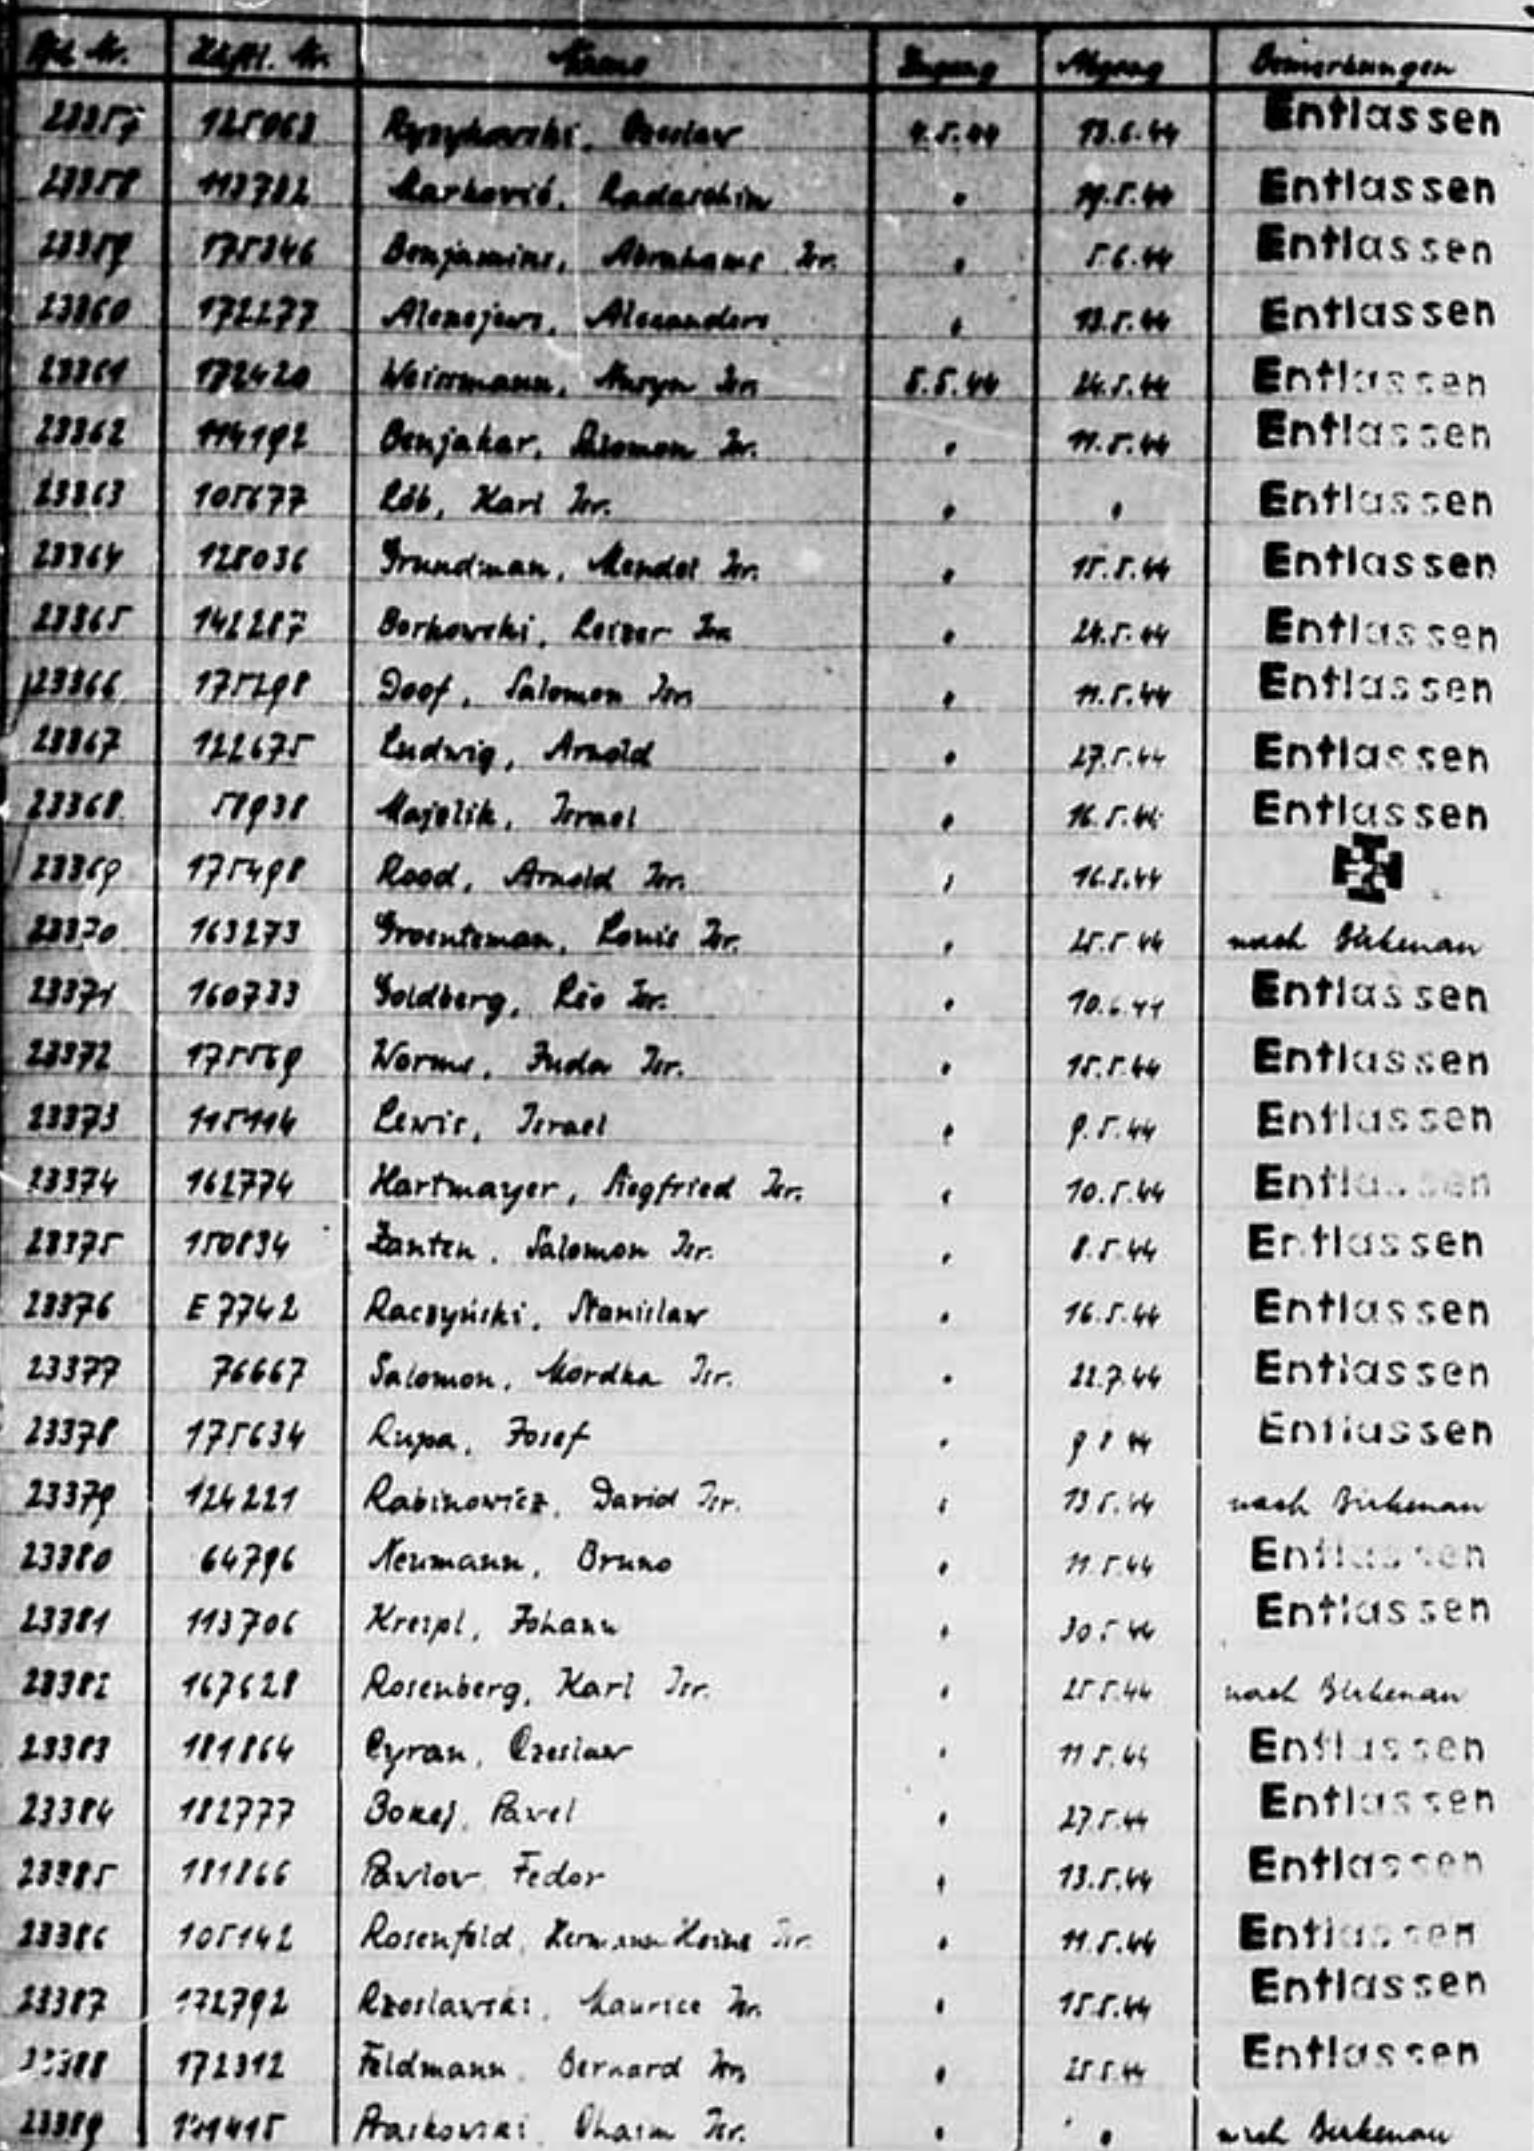 Lfd. Nr. Häftl. Nr. Name Zugang Abgang Bemerkungen
23357 125063 Czeslaw 4.5.44 13.6.44 Entlassen
23358 113782 Marković, Radaschin " 19.5.44 Entlassen
23359 175346 Benjamins, Abrahams Isr. " 5.6.44 Entlassen
23360 172277 Alexejews, Alexanders " 13.5.44 Entlassen
23361 172420 Weissmann, Nusyn Isr. 5.5.44 24.5.44 Entlassen
23362 114192 Benjakar, Salomon Isr. " 11.5.44 Entlassen
23363 105677 Löb, Karl Isr. " " Entlassen
23364 128036 Grundman, Mendel Isr. " 15.5.44 Entlassen
23365 142287 Borkowski, Leizer Isr. " 24.5.44 Entlassen
23366 175298 Doof, Salomon Isr. " 11.5.44 Entlassen
23367 122675 Ludwig, Arnold " 27.5.44 Entlassen
23368 58938 Majzlik, Israel " 16.5.44 Entlassen
23369 175498 Rood, Arnold Isr. " 16.5.44
23370 163273 Groenteman, Louis Isr. " 25.5.44 nach Birkenau
23371 160733 Goldberg, Léo Isr. " 10.6.44 Entlassen
23372 175569 Worms, Juda Isr. " 15.5.44 Entlassen
23373 115114 Lewis, Israel " 9.5.44 Entlassen
23374 162774 Hartmayer, Siegfried Isr. " 10.5.44 Entlassen
23375 150834 Zanten, Salomon Isr. " 8.5.44 Entlassen
23376 E 7742 Raczyński, Stanislaw " 16.5.44 Entlassen
23377 76667 Salomon, Mordka Isr. " 22.7.44 Entlassen
23378 175634 Rupa, Josef " 9 8 44 Entlassen
23379 124221 Rabinowicz, David Isr. " 13 5.44 nach Birkenau
23380 64796 Neumann, Bruno " 11.5.44 Entlassen
23381 113706 Kreipl, Johann " 30 5 44 Entlassen
23382 167628 Rosenberg, Karl Isr. " 25 5.44 nach Birkenau
23383 181864 Cyran, Czeslaw " 11 5.44 Entlassen
23384 182777 Bokej, Pavel " 27.5.44 Entlassen
23385 181866 Pavlov Fedor " 13.5.44 Entlassen
23386 105142 Rosenfeld, Hermann Heinz Isr. " 11.5.44 Entlassen
23387 172792 Rzoslawski, Maurice Isr. " 15.5.44 Entlassen
23388 172312 Feldmann, Bernard Isr. " 25.5.44 Entlassen
23389 Chaim Isr. " " nach Birkenau